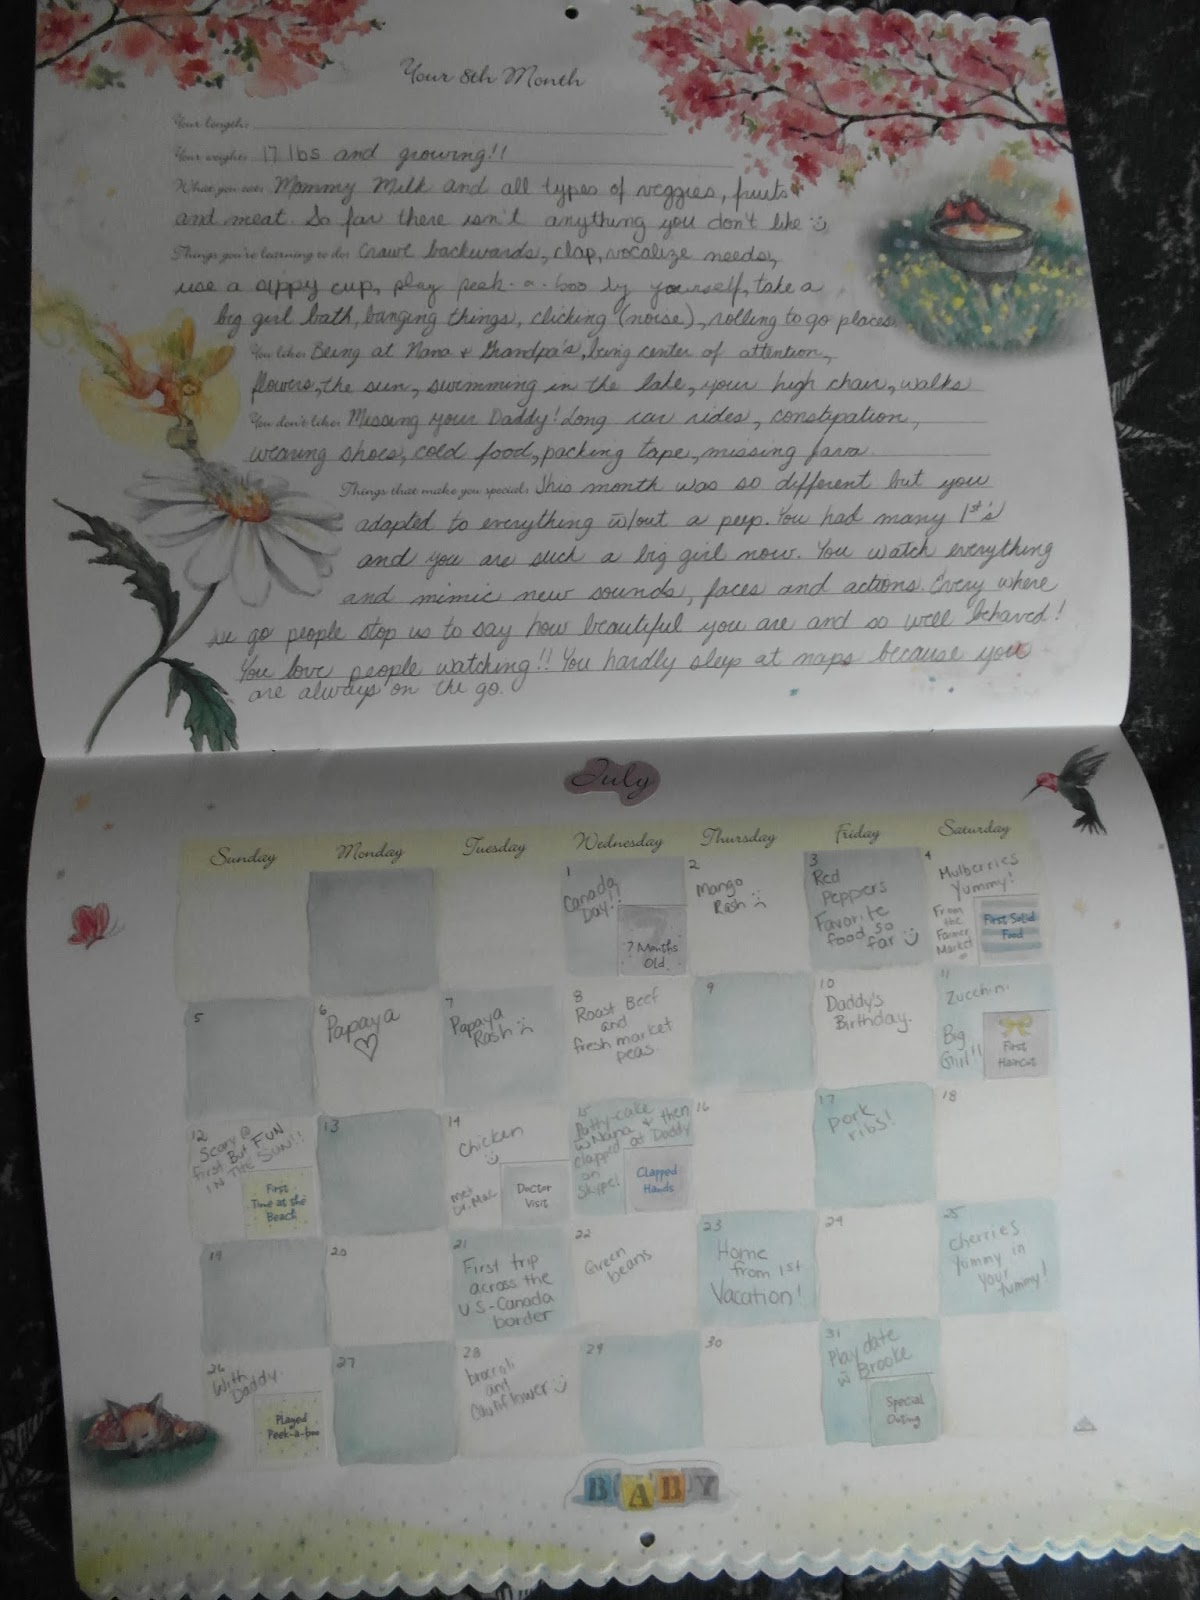 Your 8th Month
Your length:
Your weight: 17 lbs and growing!!
What you eat: Mommy Milk and all types of veggies, fruits
and meat. So far there isn't anything you don't like :)
Things you're learning to do: Crawl backwards, clap, vocalize needs,
use a sippy cup, play peek-a-boo by yourself, take a
big girl bath, banging things, clicking (noise), rolling to go places
You like: Being at Nana & Grandpa's, being center of attention,
flowers, the sun, swimming in the lake, your high chair, walks
You don't like: Missing your Daddy! Long car rides, constipation,
wearing shoes, cold food, packing tape, missing
Things that make you special: This month was so different but you
adapted to everything w/out a peep. You had many 1st's
and you are such a big girl now. You watch everything
and mimic new sounds, faces and actions Every where
we go people stop us to say how beautiful you are and so well behaved!
You love people watching!! You hardly sleep at naps because you
are always on the go.
July
Sunday Monday Tuesday Wednesday Thursday Friday Saturday
1
Canada
Day!!
7 Months
Old
2
Mango
Rash :(
3
Red
Peppers
Favorite
food so
far :)
4
Mulberries
Yummy!
From
the
Farmer
Market
First Solid
Food
5
6
Papaya
♡
7
Papaya
Rash :(
8
Roast Beef
and
fresh market
peas.
9
10
Daddy's
Birthday.
11
Zucchini
Big
Girl!!
First
Haircut
12
Scary @
first But FUN
IN THE SUN!!
First
Time at the
Beach
13
14
Chicken
:)
met
Dr. Mac
Doctor
Visit
15
Patty-cake
w Nana & then
clapped at Daddy
on
Skype!
Clapped
Hands
16
17
Pork
ribs!
18
19
20
21
First trip
across the
US-Canada
border
22
Green
beans
23
Home
from 1st
Vacation!
24
25
Cherries
Yummy in
your
tummy!
26
With
Daddy.
Played
Peek-a-boo
27
28
brocoli
and
Cauliflower :)
29
30
31
Play date
w Brooke
Special
Outing
BABY